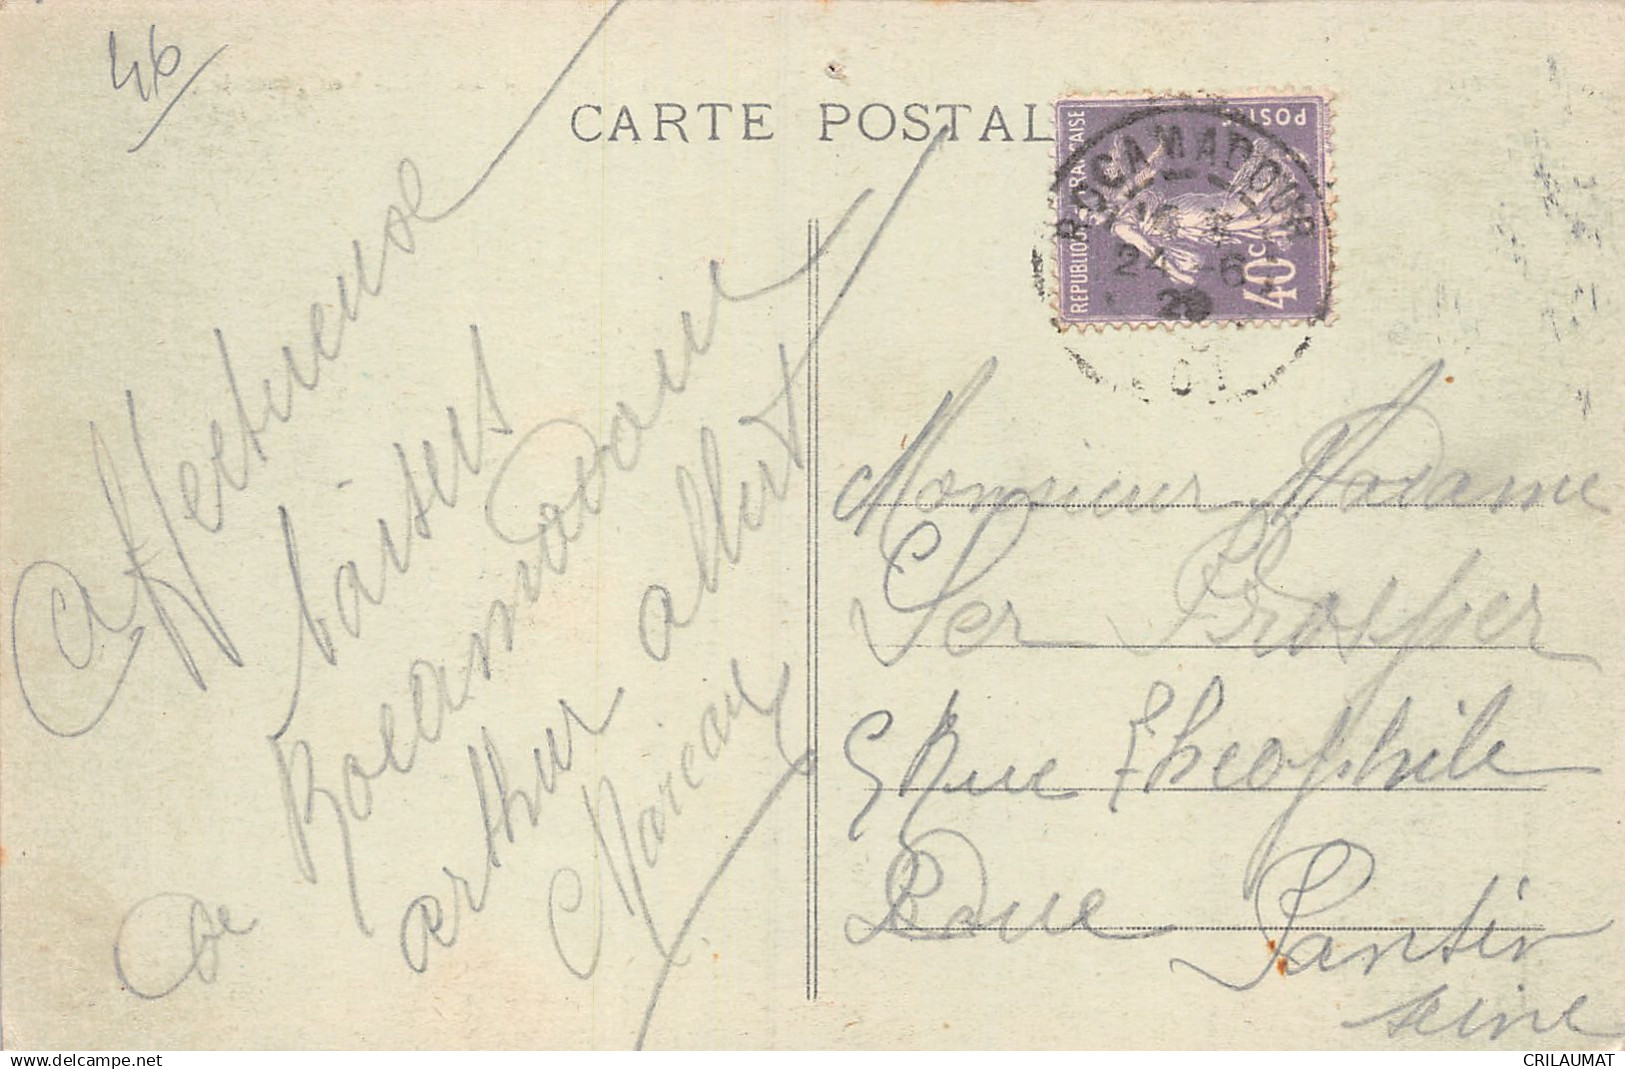 46
CARTE POSTAL
REPUBLIQUE FRANCAISE
POSTES
40c
ROCAMADOUR
24 -6
29
LOT
Affectueux
baisers
de Rocamadour
arthur albert
Marceau
Monsieur Madame
Ser Prosper
Rue Theophile
Pantin
seine
delcampe.net
CRILAUMAT